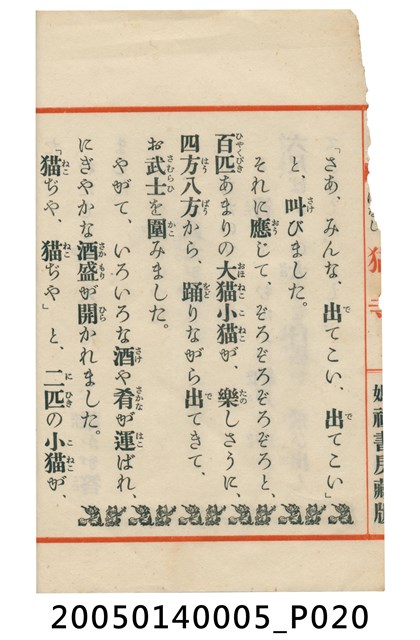 「さあ、みんな、出てこい、出てこい」
と、叫びました。
それに應じて、ぞろぞろぞろぞろと、
百匹あまりの大猫小猫が、樂しさうに、
四方八方から、踊りながら出てきて、
お武士を圍みました。
やがて、いろいろな酒や肴が運ばれ、
にぎやかな酒盛が開かれました。
「猫ぢや、猫ぢや」と、二匹の小猫が、
書房藏版
20050140005_P020